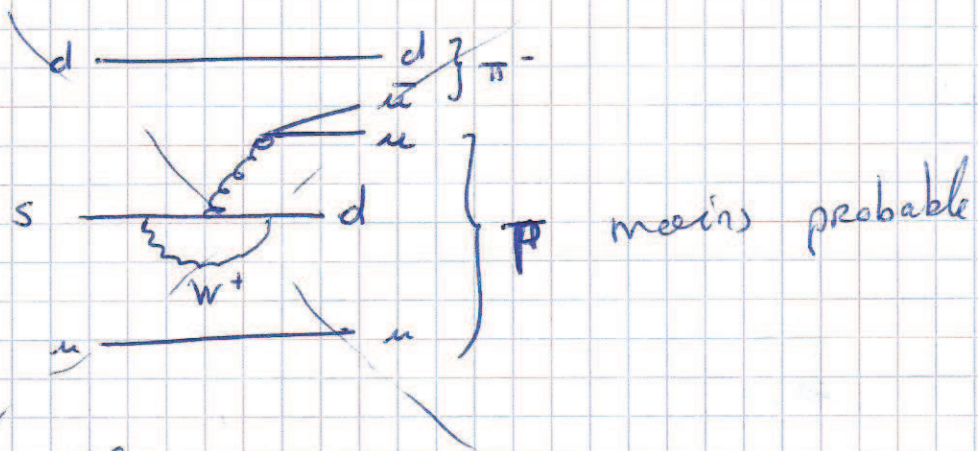 d d } π⁻
ū
u
s d } p moins probable
W⁺
u u